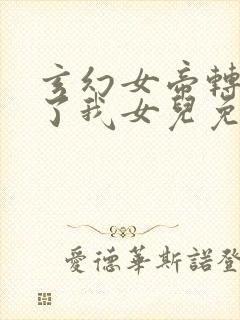 玄幻女帝轉
了我女兒免
愛德華斯諾登